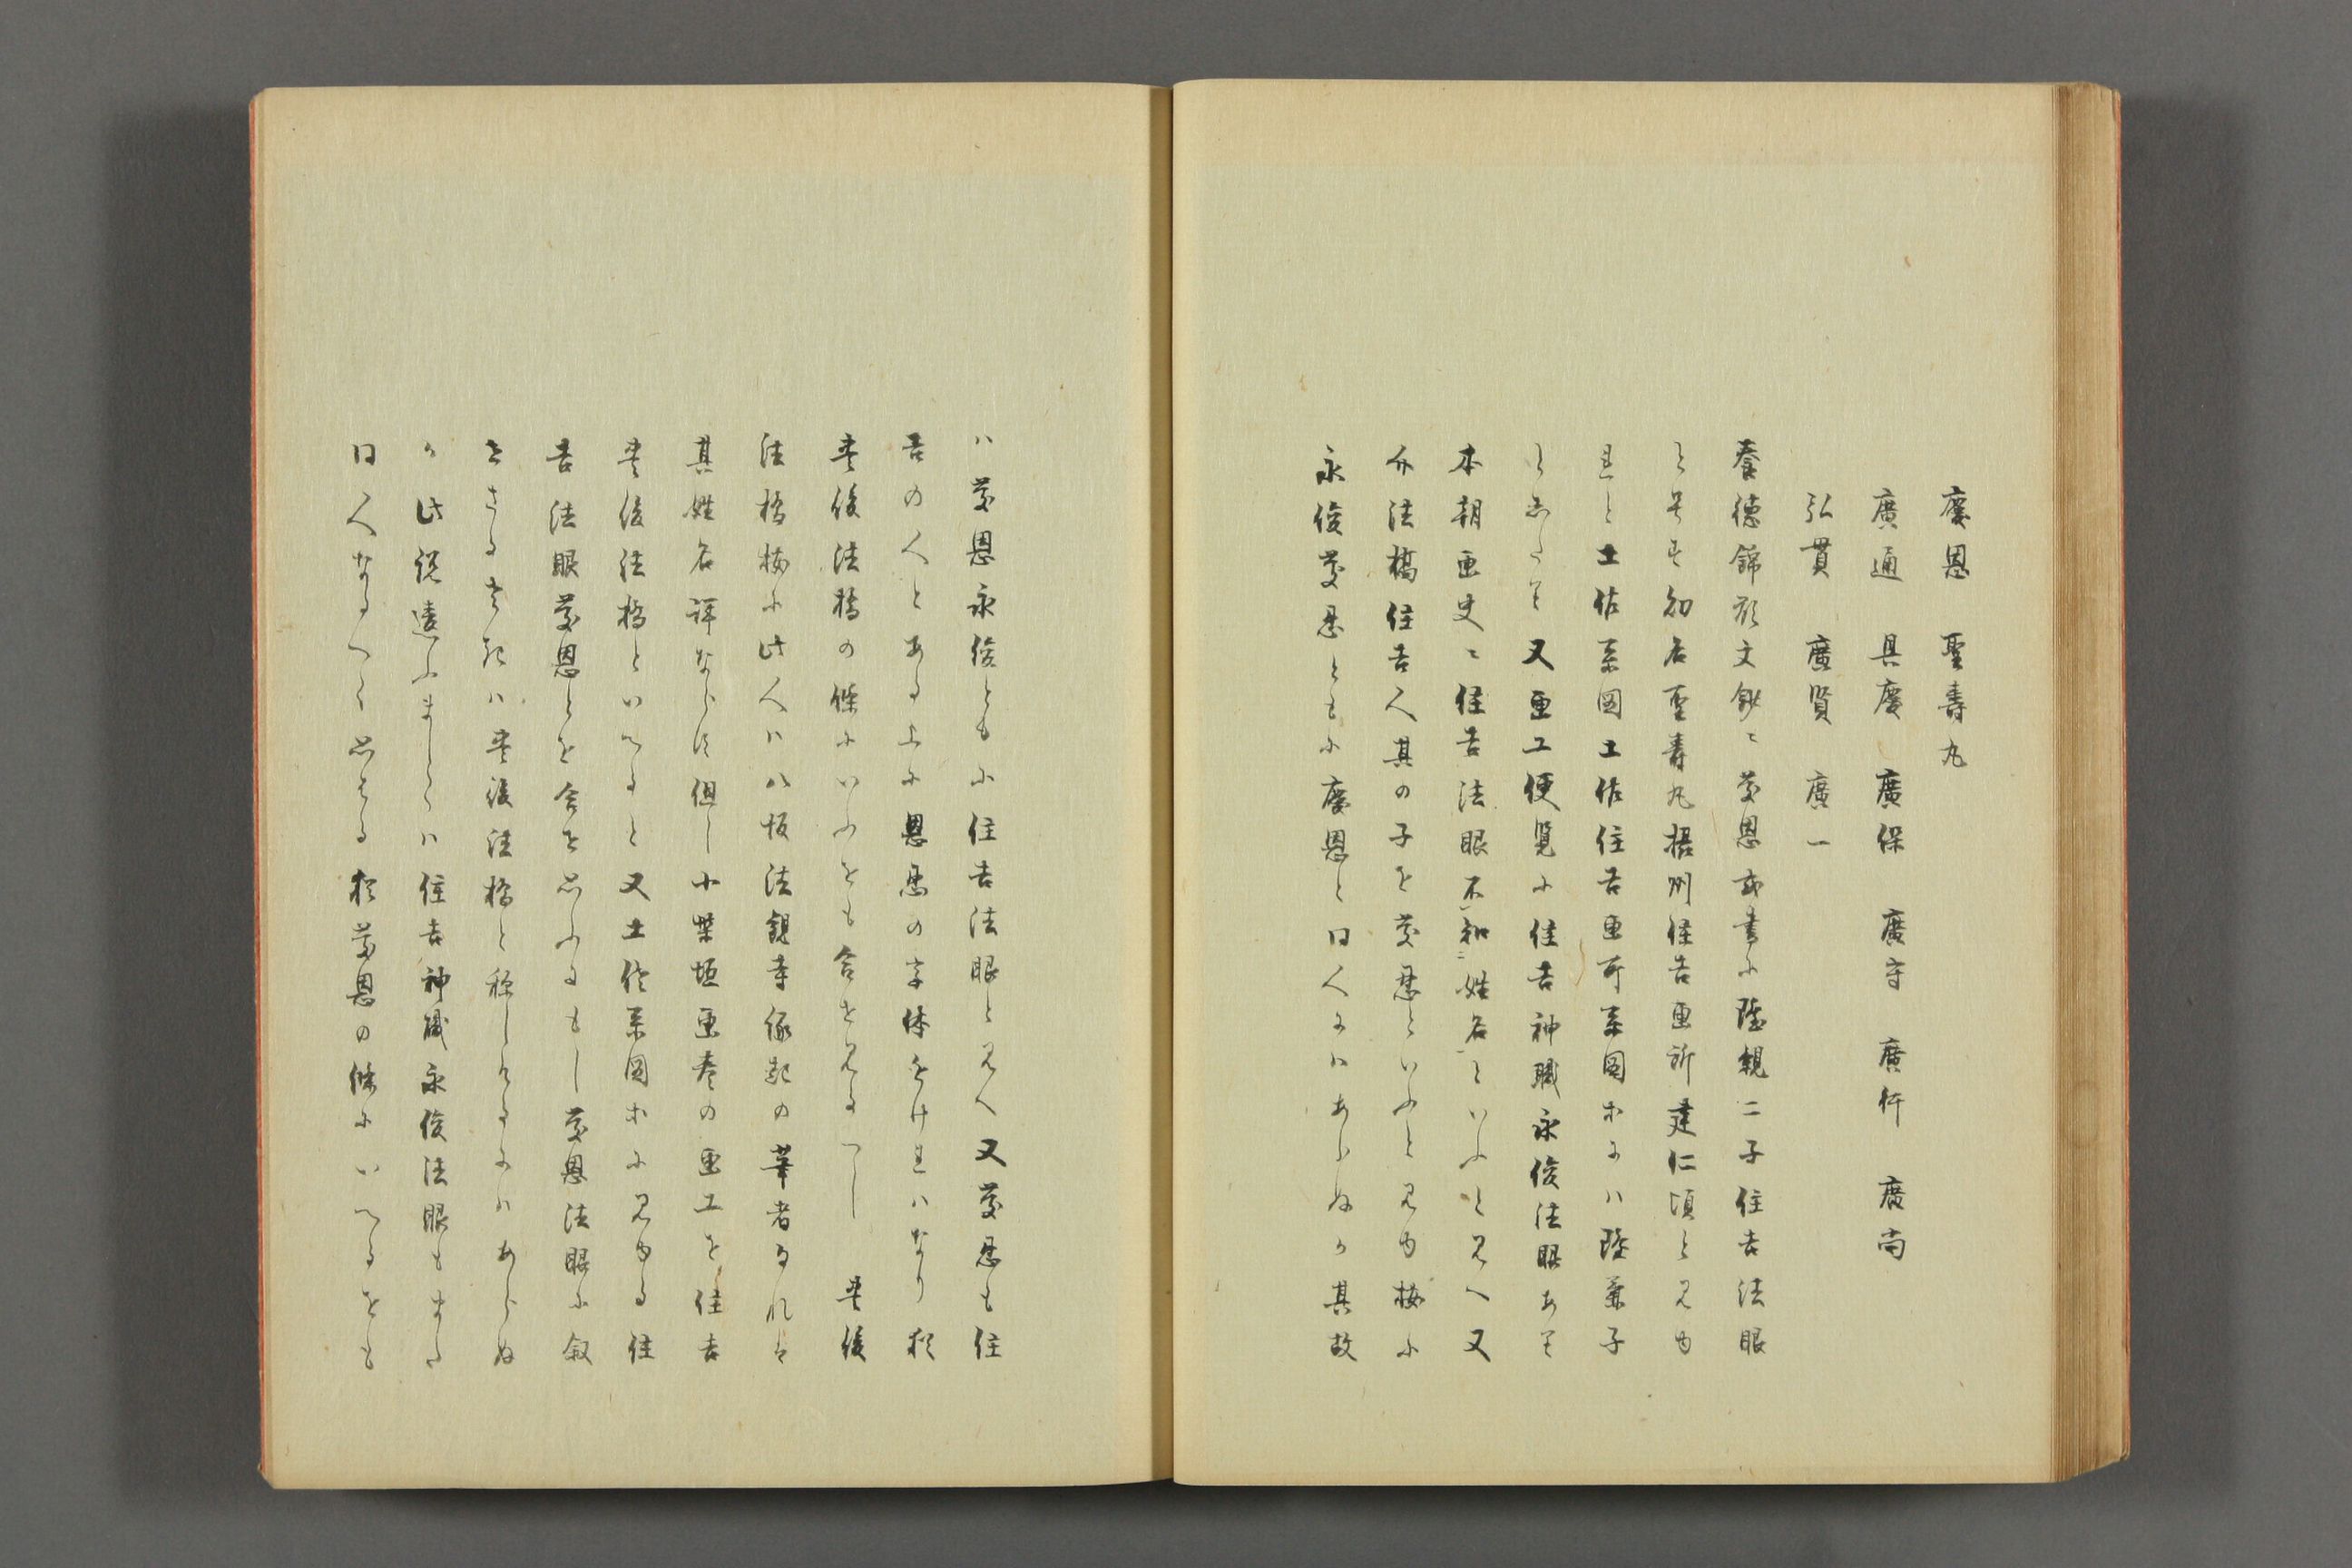 慶恩　聖壽丸
廣通　具慶　廣保　廣守　廣行　廣尚
弘貫　廣賢　廣一
養徳錦所文鈔ニ慶恩或書ニ隆親二子住吉法眼
と号す初名聖壽丸摂州住吉画所建仁頃と見ゆ
れと土佐系図土佐住吉画所系図ホにハ隆兼子
としたり又画工便覧ニ住吉神職永俊法眼あり
本朝画史ニ住吉法眼不知姓名といふと見へ又
介法橋住吉人其の子を慶忍といふと見ゆ按に
永俊慶忍ともに慶恩と同人にハあらぬか其故
ハ慶恩永俊ともに住吉法眼と見へ又慶忍も住
吉の人とある上に恩忍の字体をけれハなり猶
豊後法橋の條にいふをも合せ見るへし　豊後
法橋按に此人ハ八坂法観寺縁起の筆者なれと
其姓名詳ならす但し小柴垣画巻の画工を住吉
豊後法橋といへると又土佐系図ホに見ゆる住
吉法眼慶恩とを合せ思ふにもし慶恩法眼に叙
せさるさきハ豊後法橋と称したるにハあらぬ
か此説違ふましくハ住吉神職永俊法眼もまた
同人なるへく思はる猶慶恩の條にいへるをも